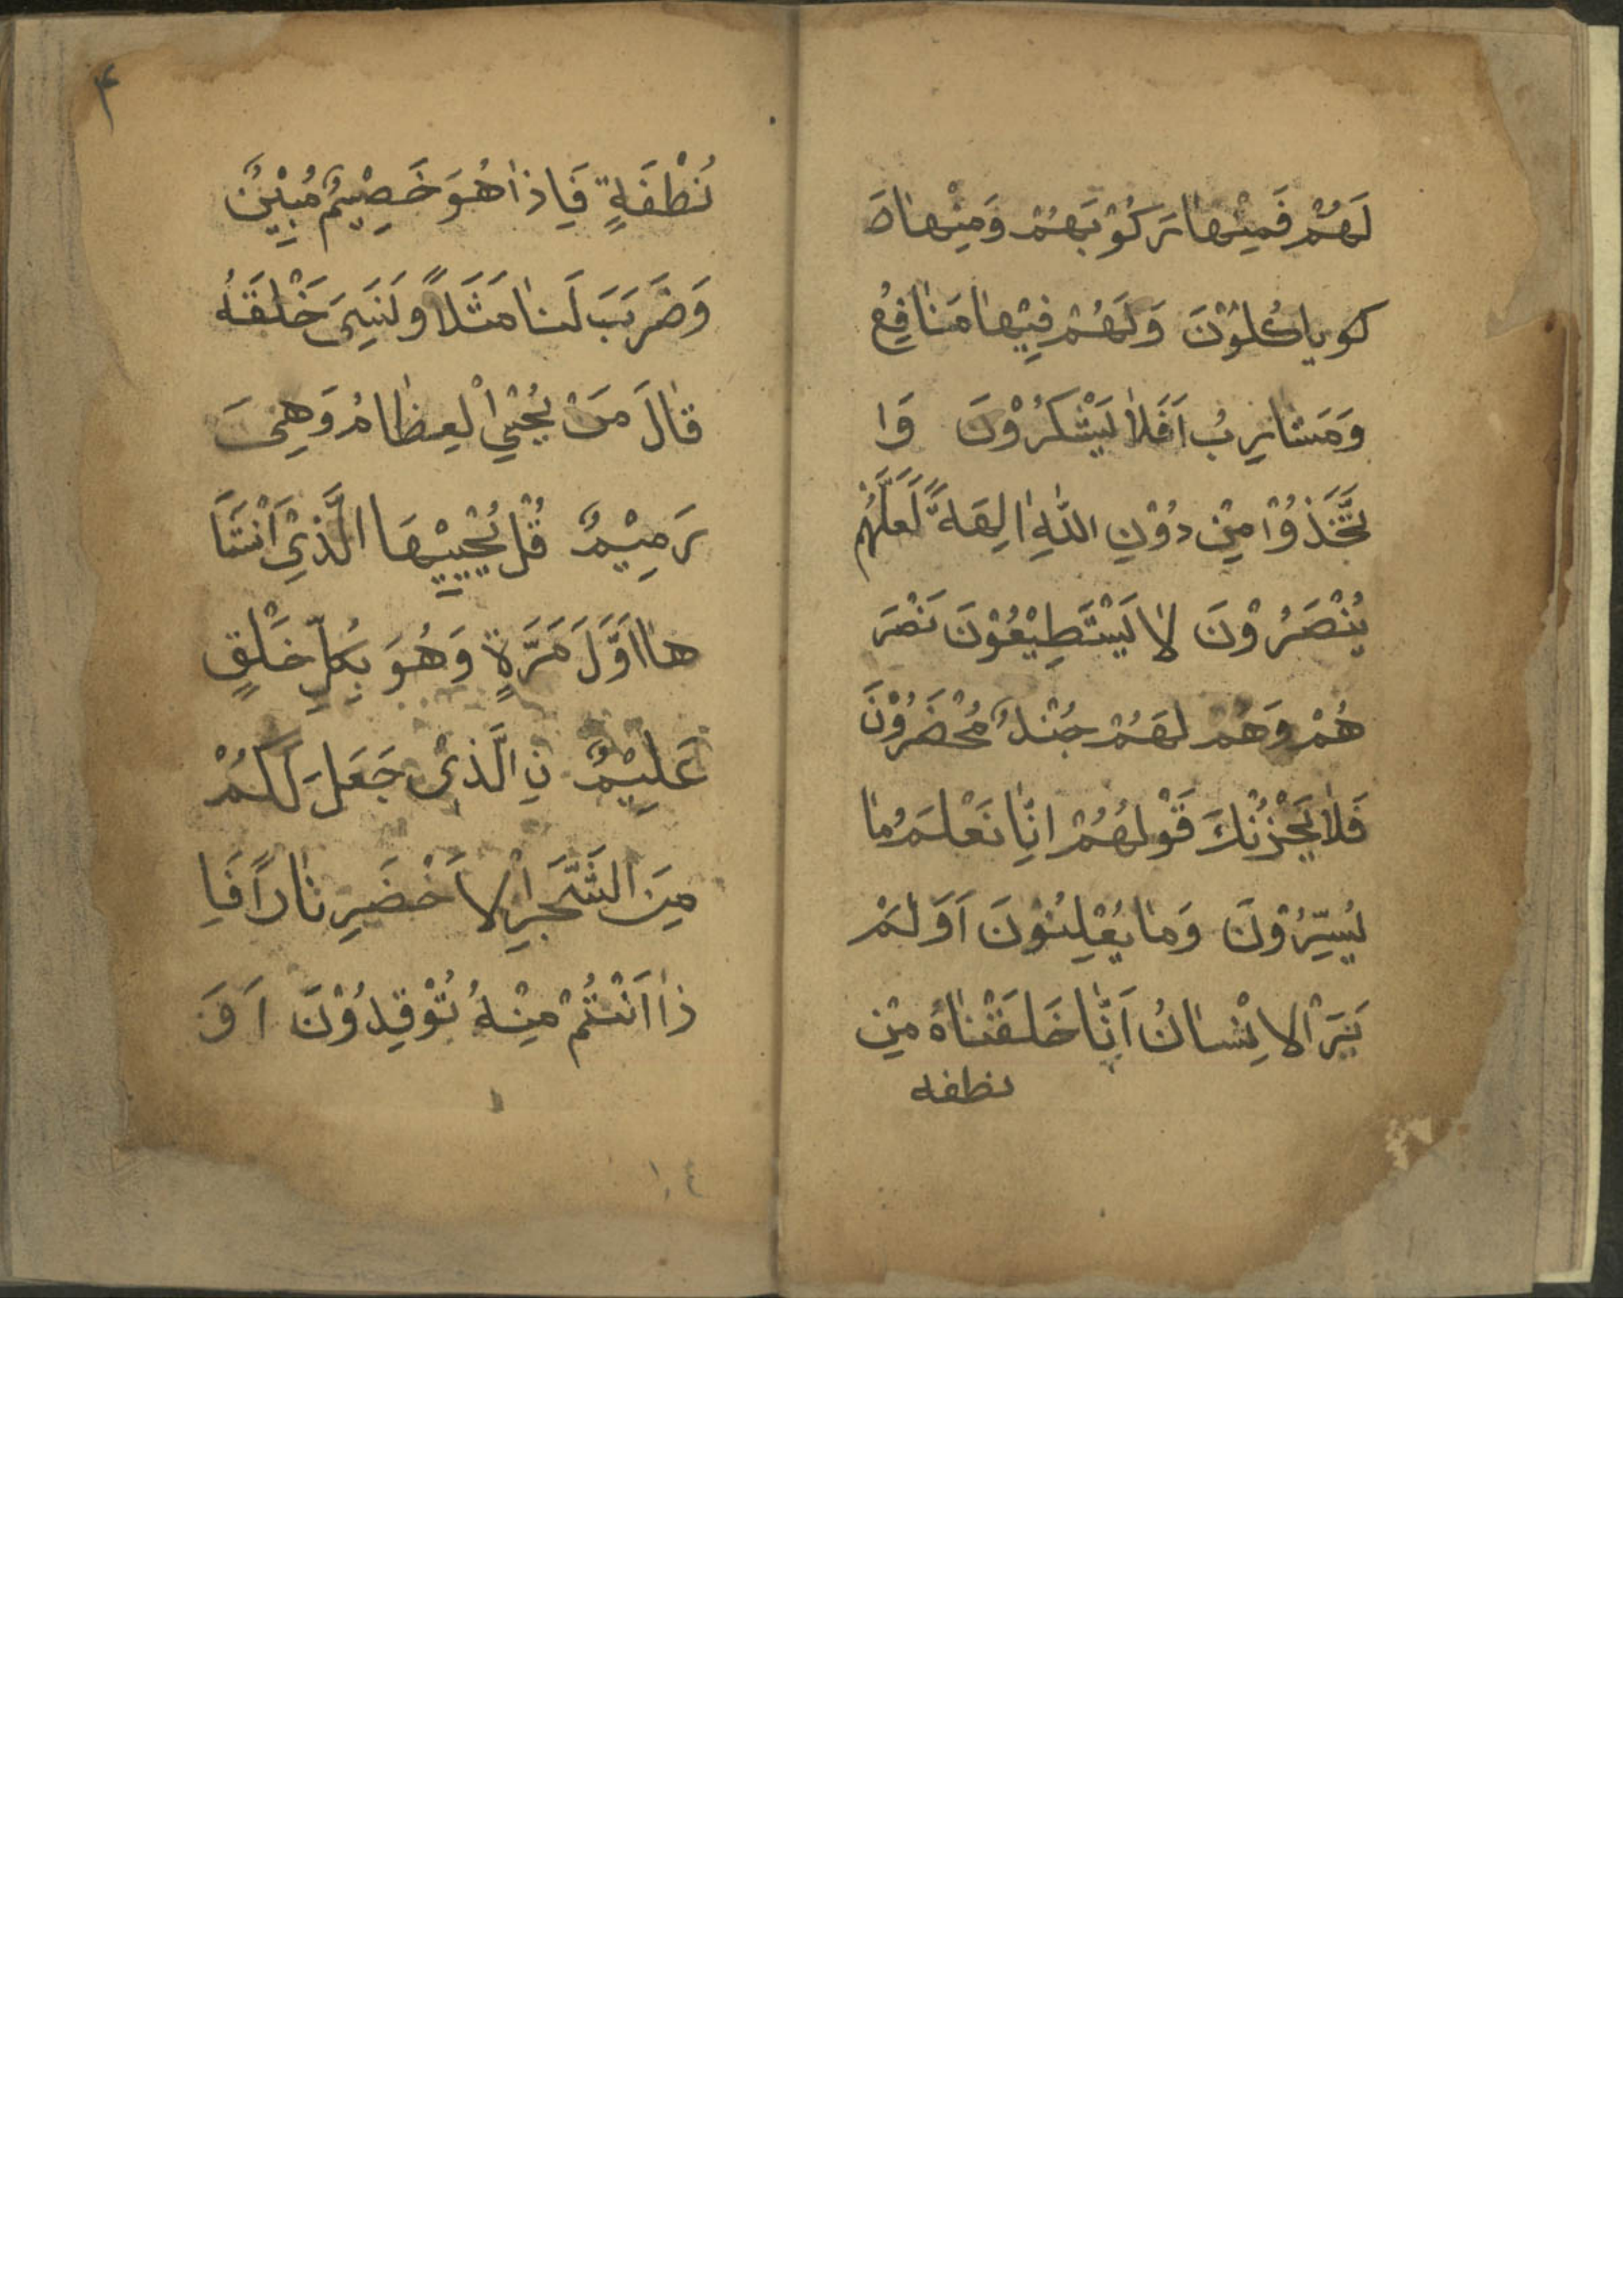 لَهُمْ فَمِنْهٰا رَكُوْبَهُمْ وَمِنْهٰاصَ
كو ياكُلُوْنَ وَلَهُمْ فِيْهٰا مَنٰافِعُ
وَمَشارِبُ اَفَلاٰ يَشْكُرُوْنَ وَا
تَّخَذُوْا مِنْ دُوْنِ اللّٰهِ اٰلِهَةً لَعَلَّهُم
يُنْصَرُوْنَ لاٰ يَسْتَطِيْعُوْنَ نَصْرَ
هُمْ وَهُمْ لَهُمْ جُنْدٌ مُحْضَرُوْنَ
فَلاٰ يَحْزُنْكَ قَوْلُهُمْ اِنّٰا نَعْلَمُ مٰا
يُسِرُّوْنَ وَمٰا يُعْلِنُوْنَ اَوَلَمْ
يَرَ الْاِنْسٰانُ اَنّٰا خَلَقْنٰاهُ مِنْ
نطفه
۴
نُطْفَةٍ فَاِذٰا هُوَ خَصِيْمٌ مُبِيْنٌ
وَضَرَبَ لَنٰا مَثَلاً وَنَسِىَ خَلْقَهُ
قٰالَ مَنْ يُحْيِى الْعِظٰامُ وَهِىَ
رَمِيْمٌ قُلْ يُحْيِيْهَا الَّذِىْ اَنْشَأَ
هٰا اَوَّلَ مَرَّةٍ وَهُوَ بِكُلِّ خَلْقٍ
عَلِيْمٌ نِ الَّذِىْ جَعَلَ لَكُمْ
مِنَ الشَّجَرِ الْاَخْضَرِ نٰاراً فَاِ
ذٰا اَنْتُمْ مِنْهُ تُوْقِدُوْنَ اَوَ